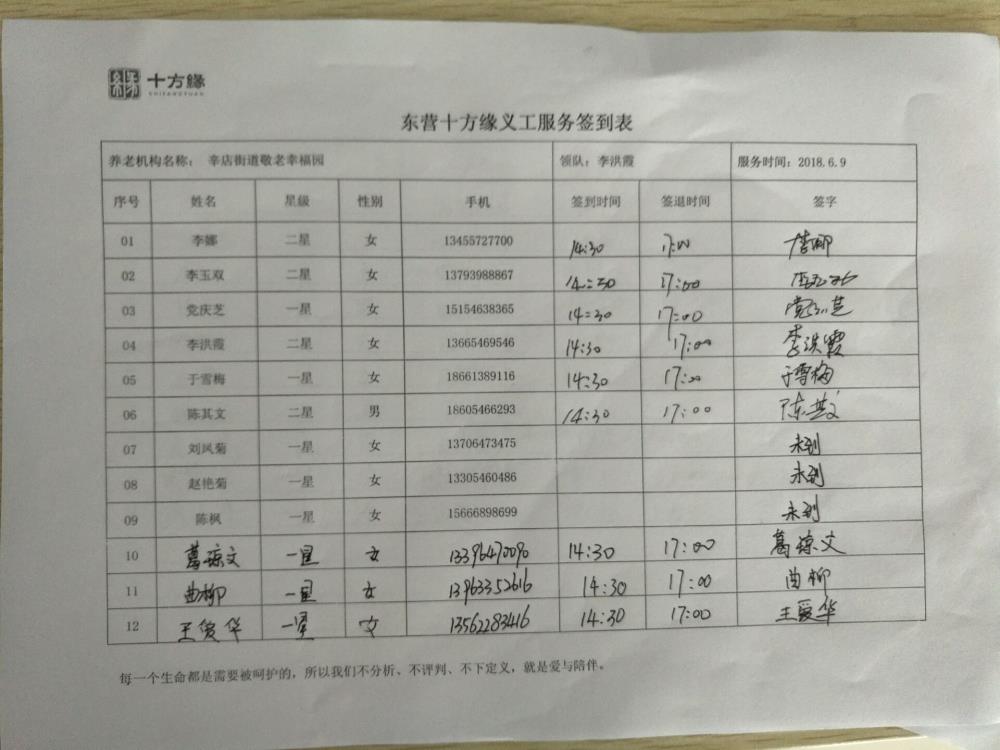 十方缘
SHIFANGYUAN
东营十方缘义工服务签到表
养老机构名称： 辛店街道敬老幸福园 领队：李洪霞 服务时间：2018.6.9
序号 姓名 星级 性别 手机 签到时间 签退时间 签字
01 李娜 二星 女 13455727700 14:30 17:00 李娜
02 李玉双 二星 女 13793988867 14:30 17:00
03 党庆芝 一星 女 15154638365 14:30 17:00 党庆芝
04 李洪霞 二星 女 13665469546 14:30 17:00 李洪霞
05 于雪梅 一星 女 18661389116 14:30 17:00 于雪梅
06 陈其文 二星 男 18605466293 14:30 17:00 陈其文
07 刘凤菊 一星 女 13706473475 未到
08 赵艳菊 一星 女 13305460486 未到
09 陈枫 一星 女 15666898699 未到
10 葛琼文 一星 女 13396470090 14:30 17:00 葛琼文
11 曲柳 一星 女 13963352616 14:30 17:00 曲柳
12 王爱华 一星 女 13562283416 14:30 17:00 王爱华
每一个生命都是需要被呵护的，所以我们不分析、不评判、不下定义，就是爱与陪伴。